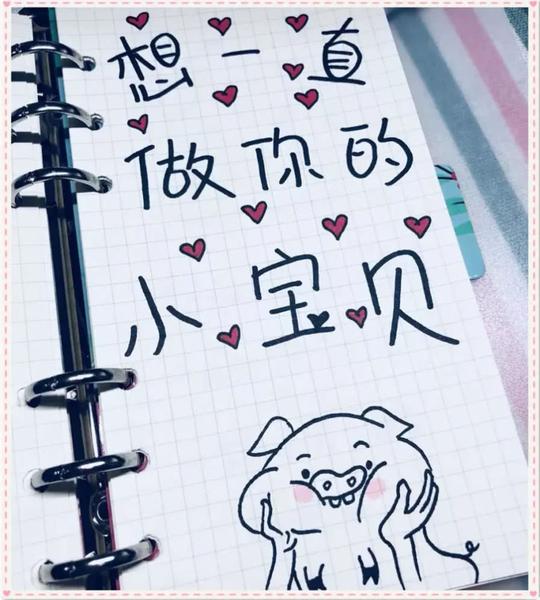 想一直
做你的
小宝贝